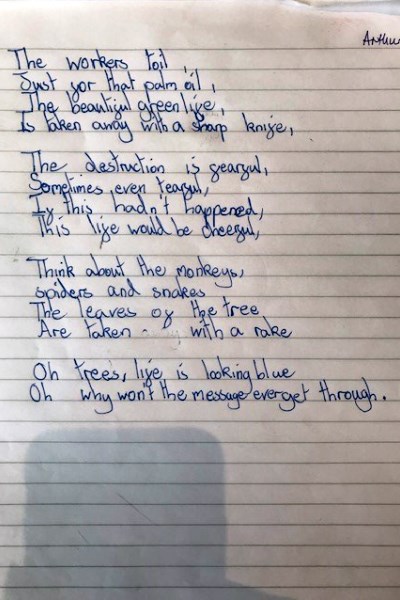 Arthur
The workers toil,
Just for that palm oil,
The beautiful green life,
Is taken away with a sharp knife,
The destruction is fearful,
Sometimes even tearful,
If this hadn't happened,
This life would be cheerful,
Think about the monkeys,
spiders and snakes
The leaves of the tree
Are taken with a rake
Oh trees, life is looking blue
Oh why won't the message ever get through.